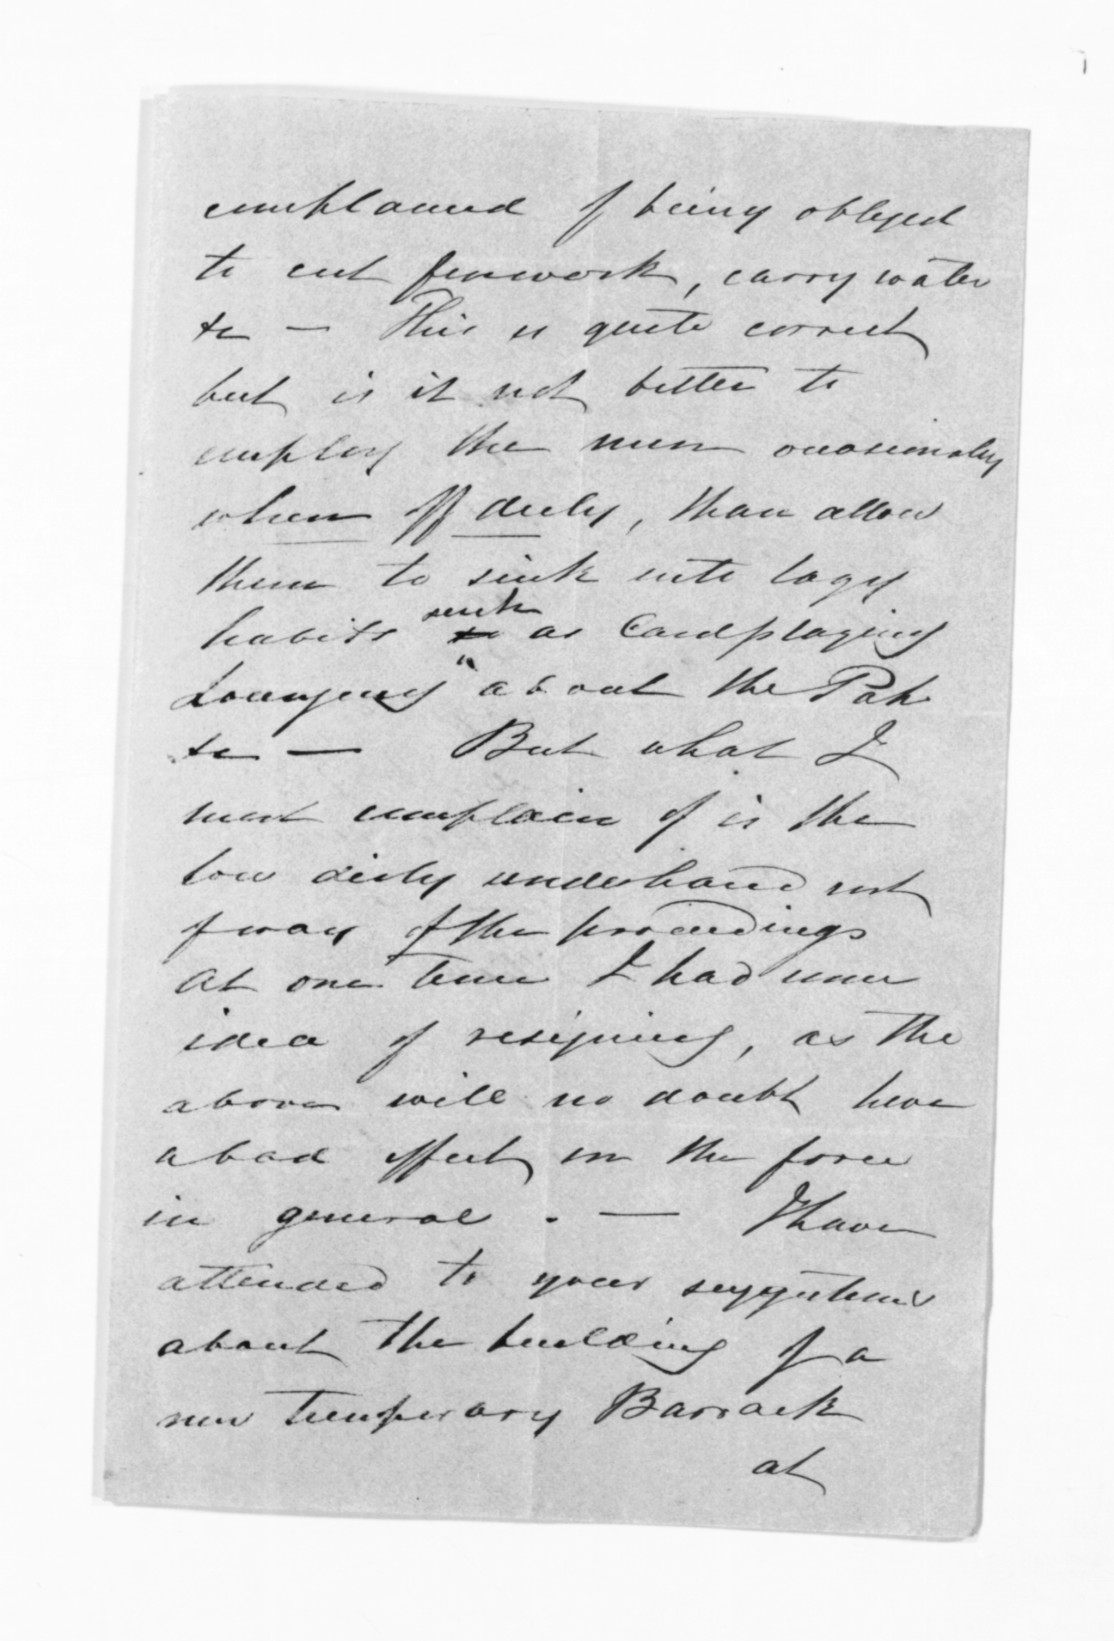 complained of being obliged
to cut firework, carry water
&c — This is quite correct
but is it not better to
employ the men occasionaly
when off duty, than allow
them to sink into lazy
habits such as Cardplaying
Lounging about the Pah
&c — But what I
most complain of is the
low dirty underhand sort
of way of the proceedings
At one time I had some
idea of resigning, as the
above will no doubt have
a bad effect on the force
in general. — I have
attended to your suggestions
about the building of a
new temporary Barrack
at